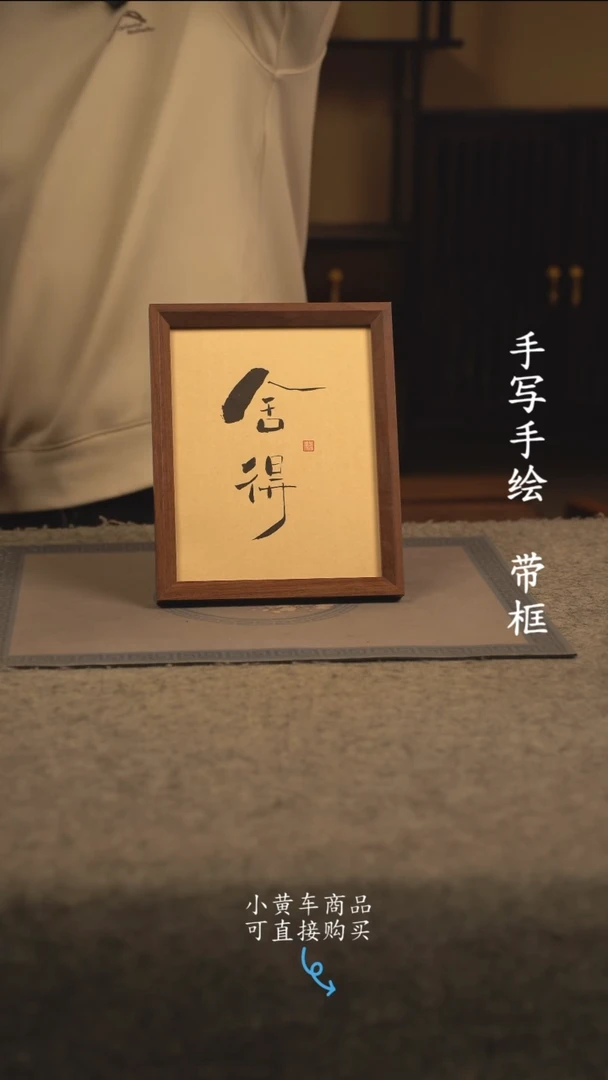 舍得
手写手绘 带框
小黄车商品
可直接购买